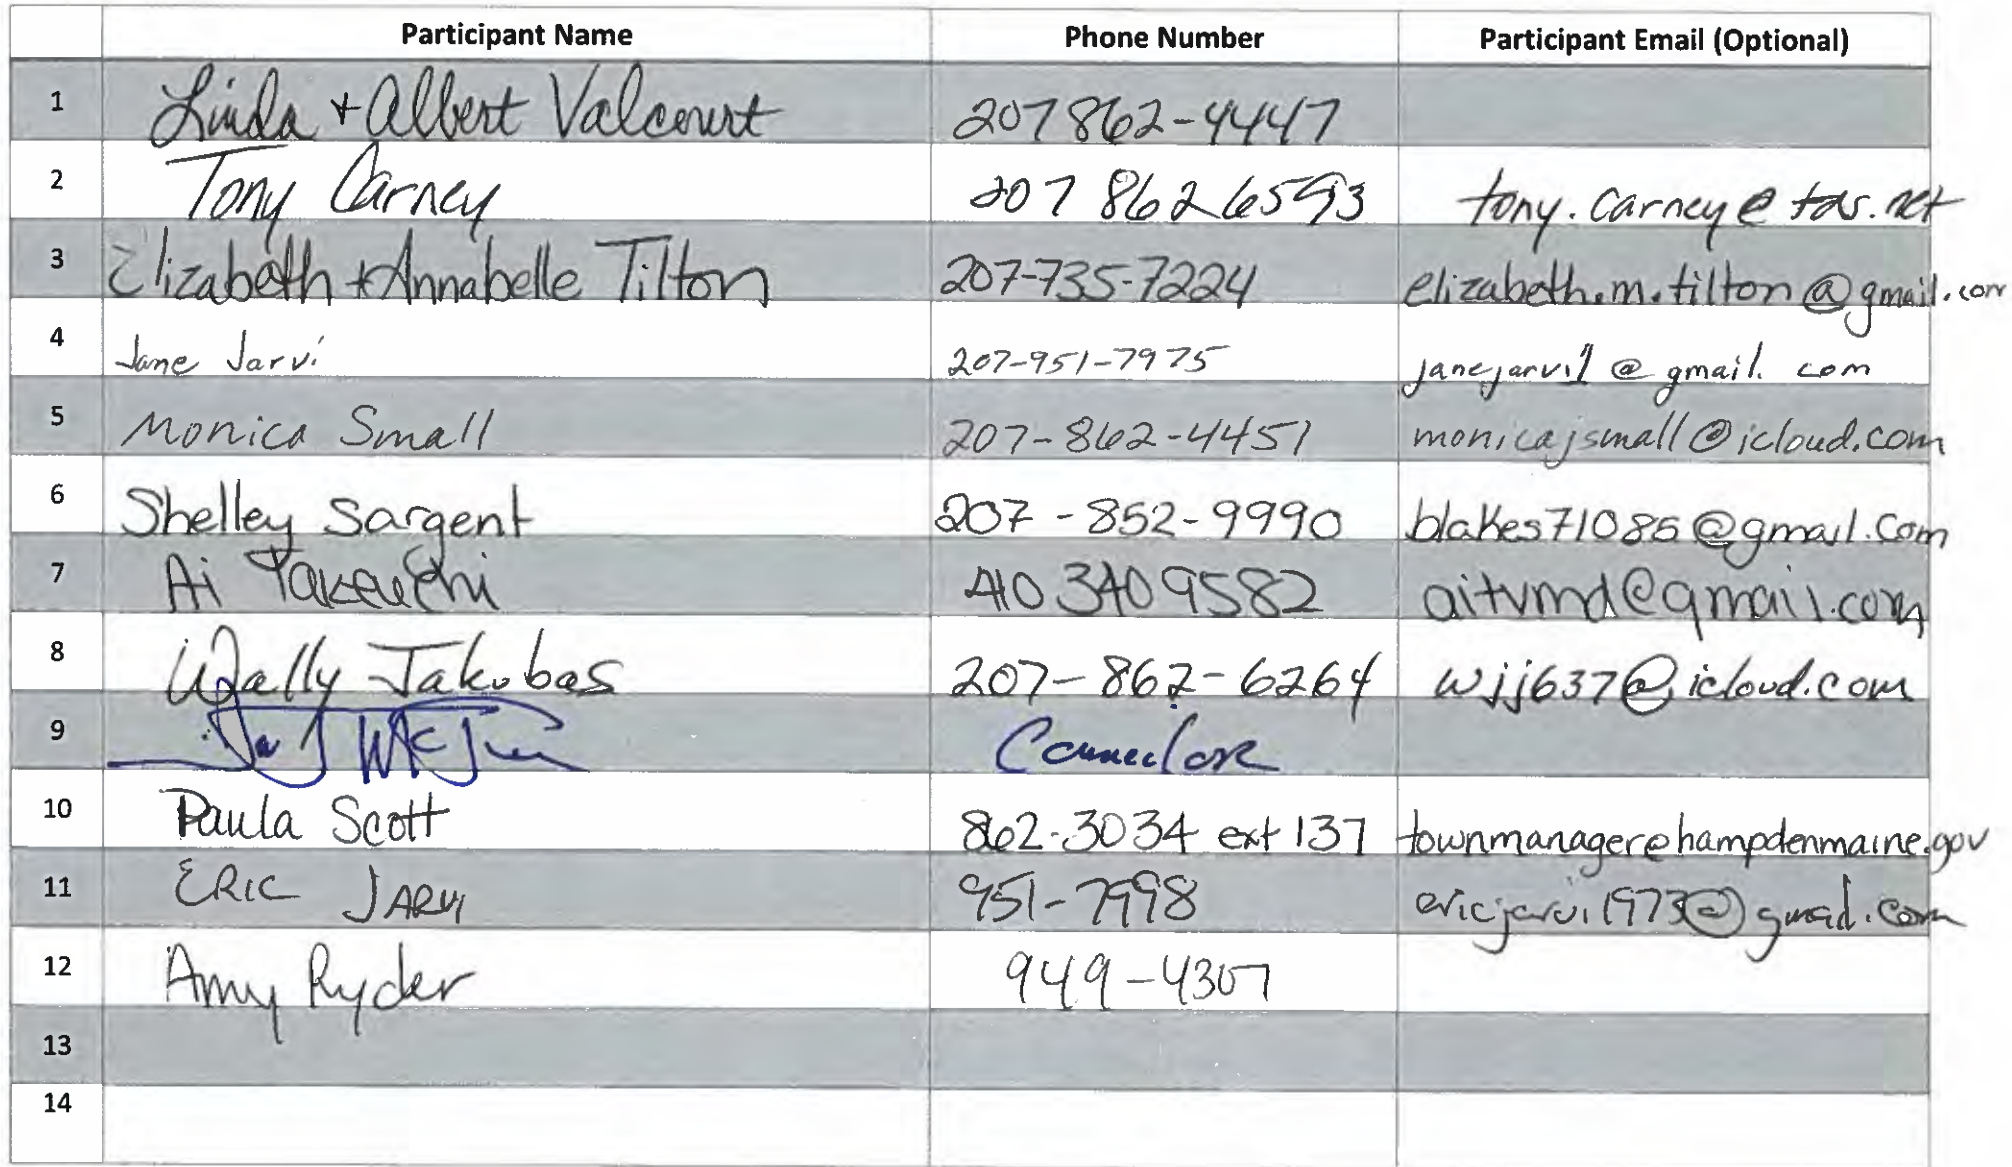 Participant Name Phone Number Participant Email (Optional)
1 Linda + Albert Valcourt 207 862-4447
2 Tony Carney 207 862 6593 tony.carney@tds.net
3 Elizabeth + Annabelle Tilton 207-735-7224 elizabeth.m.tilton@gmail.com
4 Jane Jarvi 207-951-7975 janejarvi1@gmail.com
5 Monica Small 207-862-4451 monicajsmall@icloud.com
6 Shelley Sargent 207-852-9990 blakes71086@gmail.com
7 Ai Takeuchi 410 340 9582 aitvmd@gmail.com
8 Wally Jakubas 207-862-6264 wjj637@icloud.com
9
10 Paula Scott 862-3034 ext 137 townmanager@hampdenmaine.gov
11 ERIC JARVI 951-7998 ericjarvi1973@gmail.com
12 Amy Ryder 949-4307
13
14